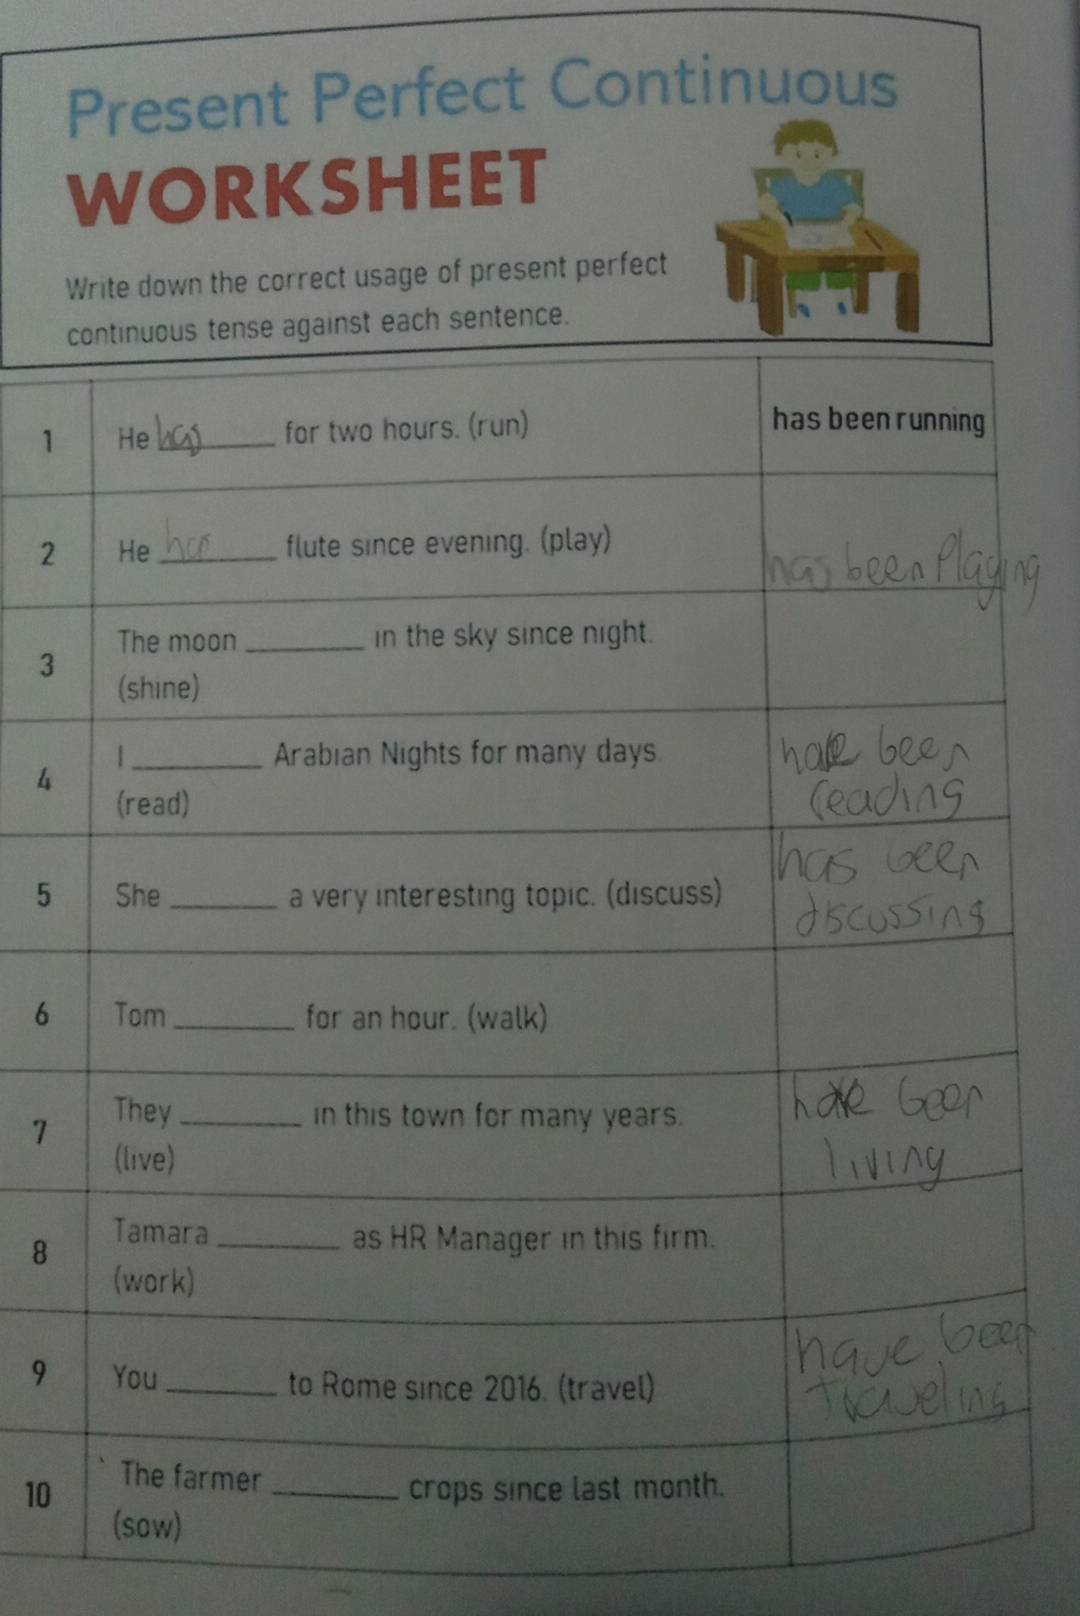 Present Perfect Continuous
WORKSHEET
Write down the correct usage of present perfect
continuous tense against each sentence.
1 He has______ for two hours. (run) has been running
2 He has______ flute since evening. (play) has been Playing
3 The moon ________ in the sky since night.
(shine)
4 I ________ Arabian Nights for many days. have been
(read) reading
has been
5 She ________ a very interesting topic. (discuss)
discussing
6 Tom ________ for an hour. (walk)
7 They ________ in this town for many years. have been
(live) living
8 Tamara ________ as HR Manager in this firm.
(work)
have been
9 You ________ to Rome since 2016. (travel) traveling
10 The farmer ________ crops since last month.
(sow)